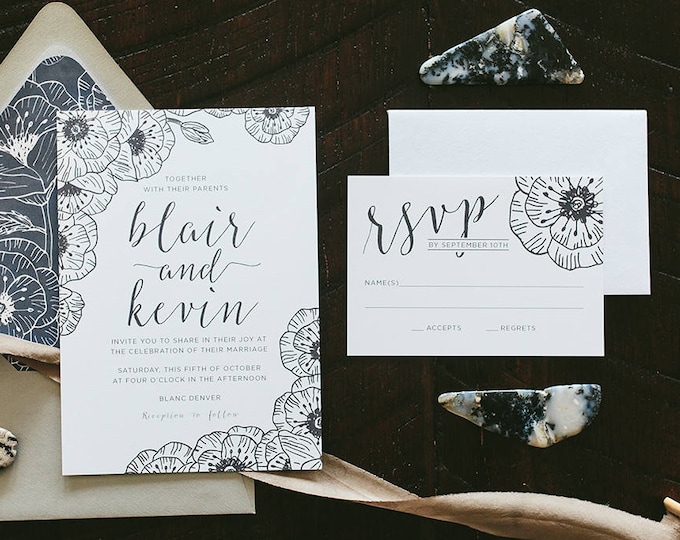 TOGETHER
WITH THEIR PARENTS
blair
and
kevin
INVITE YOU TO SHARE IN THEIR JOY AT
THE CELEBRATION OF THEIR MARRIAGE
SATURDAY, THIS FIFTH OF OCTOBER
AT FOUR O'CLOCK IN THE AFTERNOON
BLANC DENVER
Reception to follow
rsvp
BY SEPTEMBER 10TH
NAME(S)
ACCEPTS REGRETS